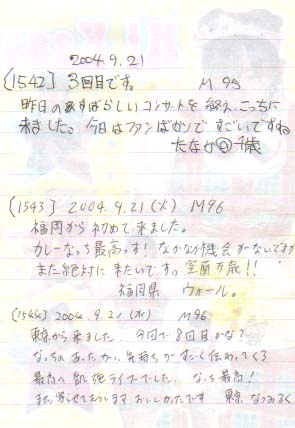 2004.9.21
(1542) 3回目です。 M95
昨日のすばらしいコンサートを終え、こっちに
来ました。今日はファンばかりですごいですね
たなか@千歳
(1543) 2004.9.21(火) M96
福岡から初めて来ました。
カレーなっち最高っす!なかなか機会がないですが
また絶対に来たいです。室蘭万歳!!
福岡県 ウォール。
(1544) 2004.9.21(火) M96
東京から来ました。今回で8回目かな?
なっちのあったかい気持ちがすごく伝わってくる
最高の凱旋ライブでした。なっち最高!
また寄らせてもらいます おいしかったです 東京